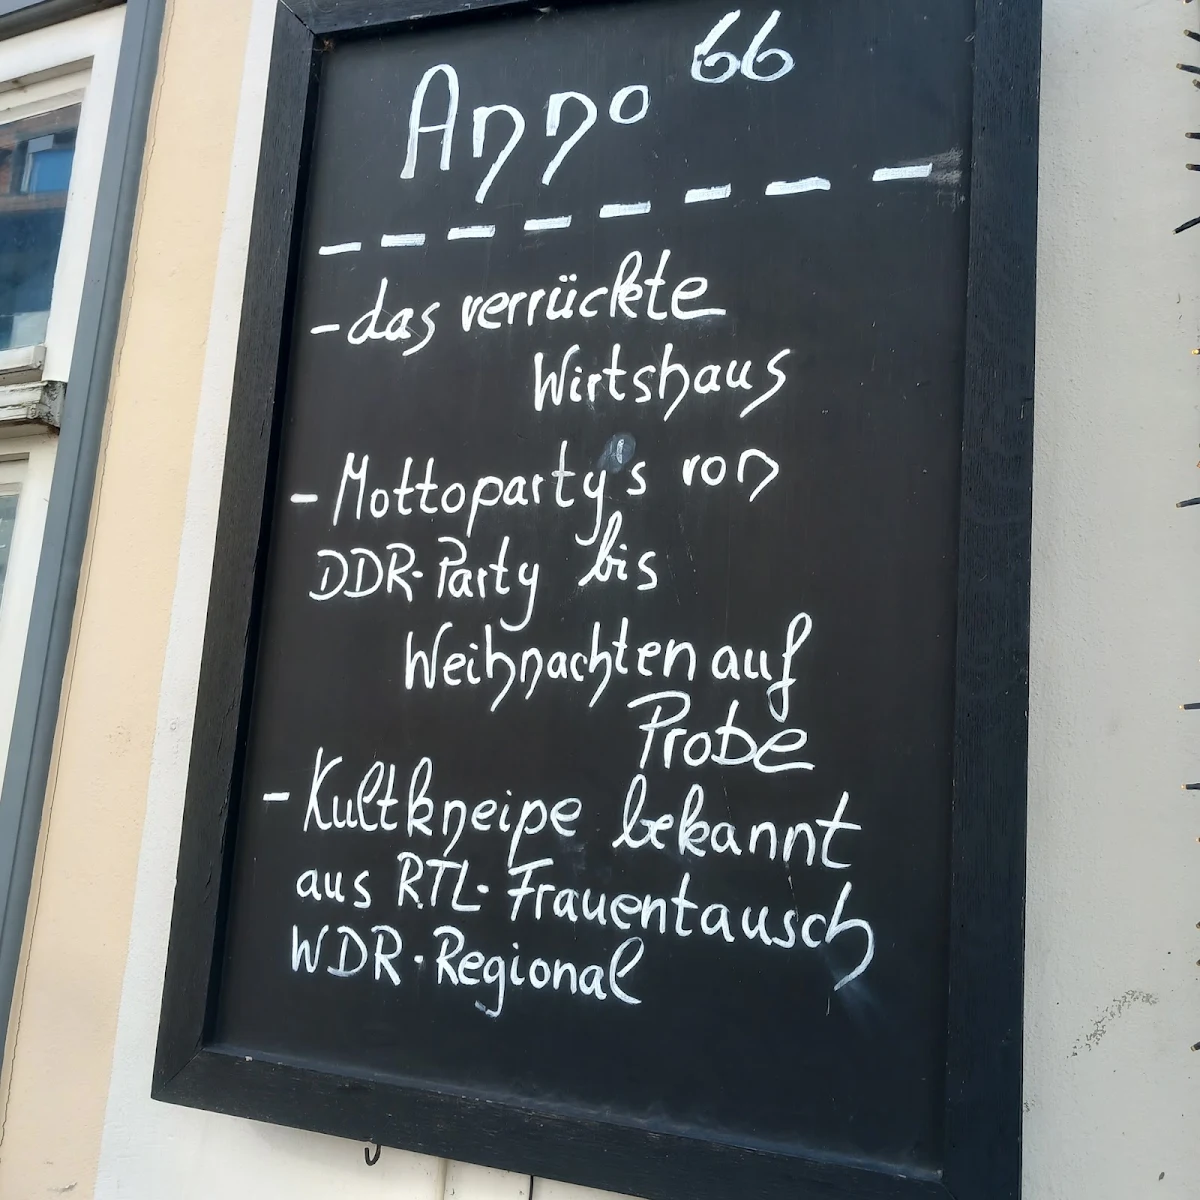 Anno 66
- das verrückte
Wirtshaus
- Mottoparty's von
DDR-Party bis
Weihnachten auf
Probe
- Kultkneipe bekannt
aus RTL-Frauentausch
WDR-Regional